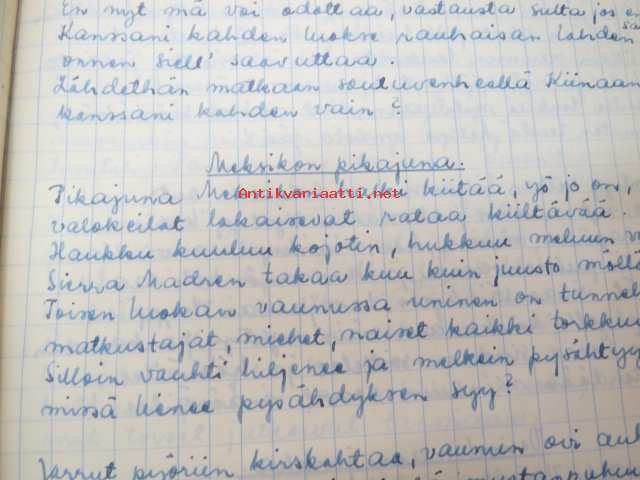 En nyt mä voi odottaa, vastausta sulta jos
Kanssani kahden luokse rauhaisan lahden
onnen siell' saavuttaa.
Lähdethän matkaan soutuveneellä Kiinaan
kanssani kahden vain?
Meksikon pikajuna.
Pikajuna kiitää, yö jo on,
valokeilat lakaisevat rataa kiiltävää.
Haukku kuuluu kojotin, hukkuu meluun
Sierra Madren takaa kuu kuin juusto
Toisen luokan vaunussa uninen on
matkustajat, miehet, naiset kaikki
Silloin vauhti hiljenee ja melkein
missä lienee pysähdyksen syy?
Jarrut pyöriin kirskahtaa, vaunun ovi
Antikvariaatti.net